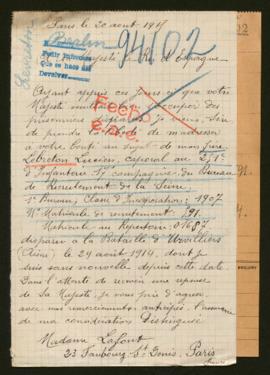 Paris le 20 août 1917
Berlin
94102
Majesté Roi d'Espagne
Petit
que se hace del
Devolver
Ayant appris ces jours ci que votre
Majesté occuper des
prisonniers je viens
de prendre la liberté de m'adresser
à votre bonté au sujet de mon frère
Lebreton Lucien, caporal au
d'Infanterie 17 compagnie du Bureau
de Recrutement de la Seine
1r Bureau, Classe d'Incorporation: 1907
No Matricule de recrutement 791
Matricule au Répertoire: 01687
disparu à la Bataille d'Urvillers
(Aisne) le 29 août 1914, dont je
suis sans nouvelle depuis cette date
Dans l'Attente de recevoir une réponse
de Sa Majesté, je vous prie d'agréer,
avec mes remerciements anticipés, l'assurance
de ma considération Distinguée
Madame Lafont
23 Faubourg St Denis, Paris